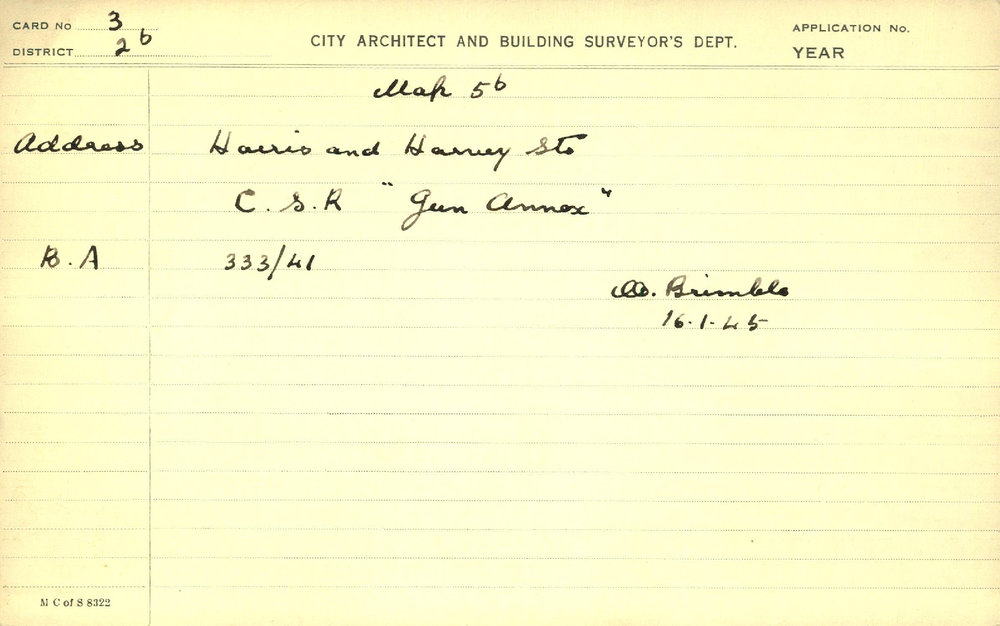 CARD No 3
DISTRICT 2b
CITY ARCHITECT AND BUILDING SURVEYOR'S DEPT.
APPLICATION No.
YEAR
Map 5b
Address Harris and Harvey Sts
C.S.R "Gun Annex"
B.A 333/41
Brimble
16.1.45
M C of S 8322